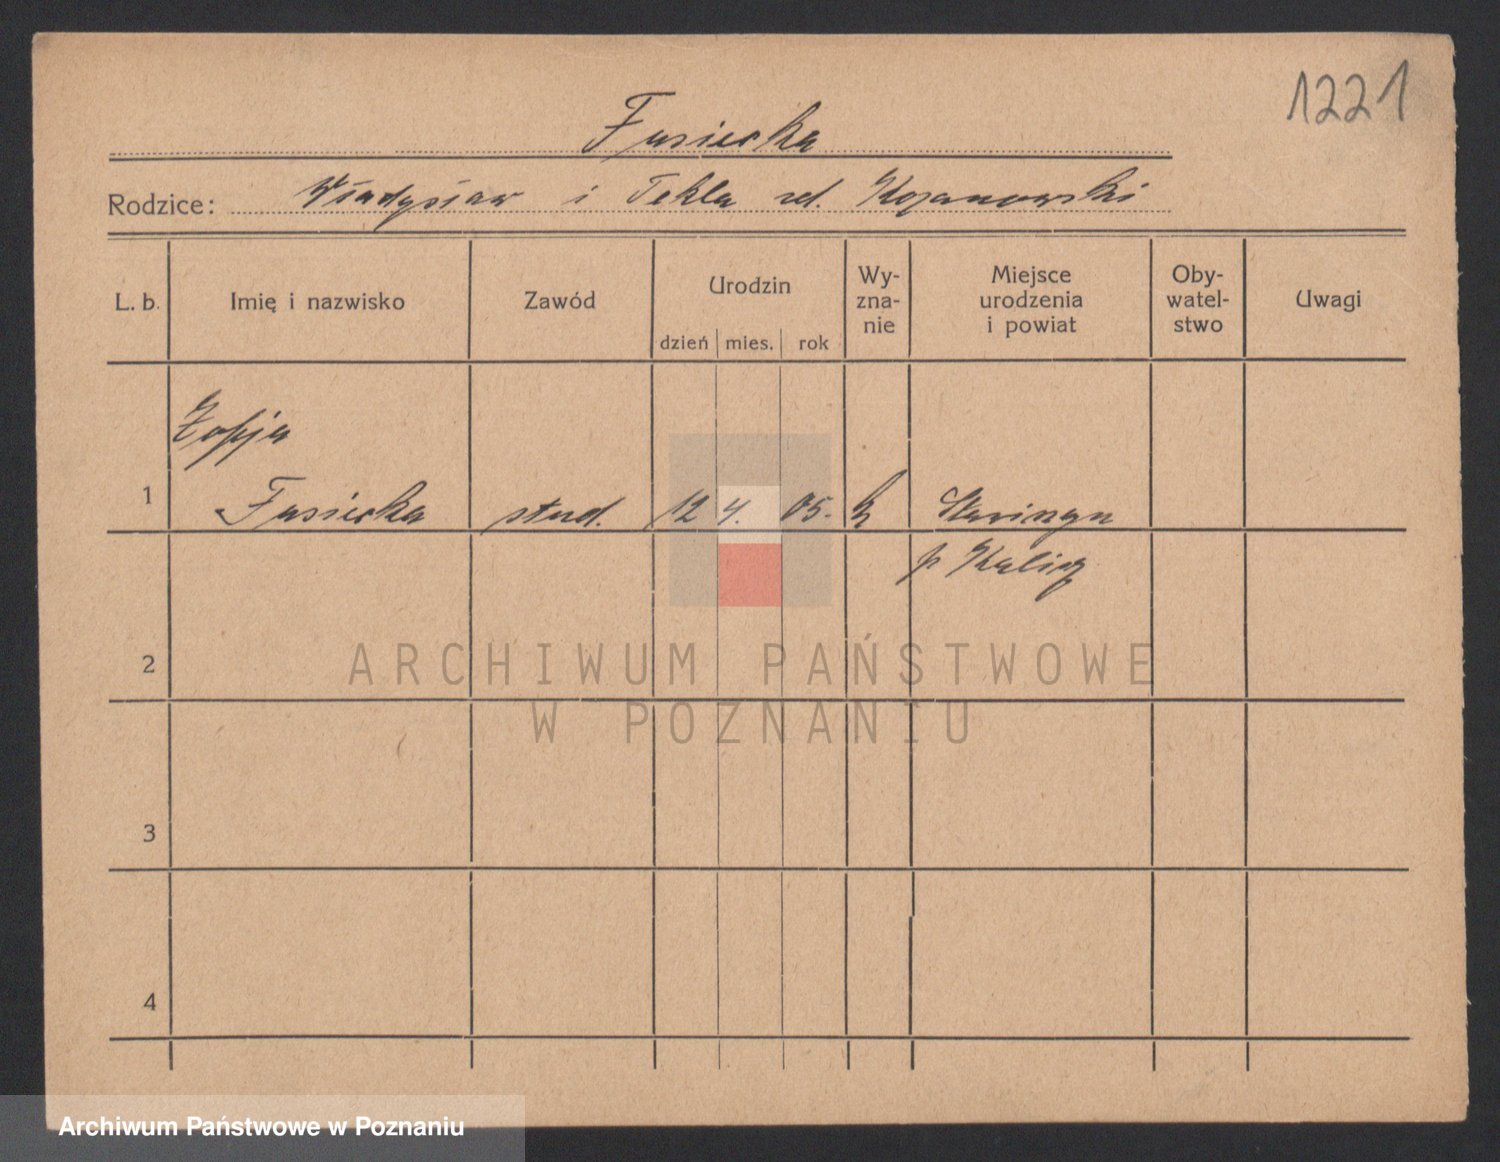 1221
Fusiecka
Rodzice: Władysław i Tekla zd. Kozanowski
L. b.
Imię i nazwisko
Zawód
Urodzin
dzień mies. rok
Wy-
zna-
nie
Miejsce
urodzenia
i powiat
Oby-
watel-
stwo
Uwagi
Zofja
1 Fusiecka stud. 12 4. 05. k
p Kalisz
2
3
4
ARCHIWUM PAŃSTWOWE
W POZNANIU
Archiwum Państwowe w Poznaniu